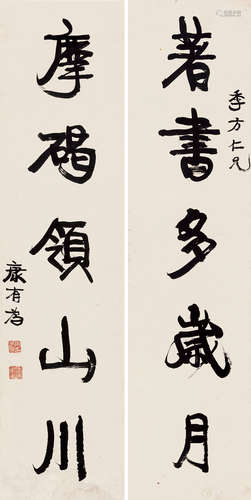 著書多歲月
季方仁兄
摩碣領山川
康有為